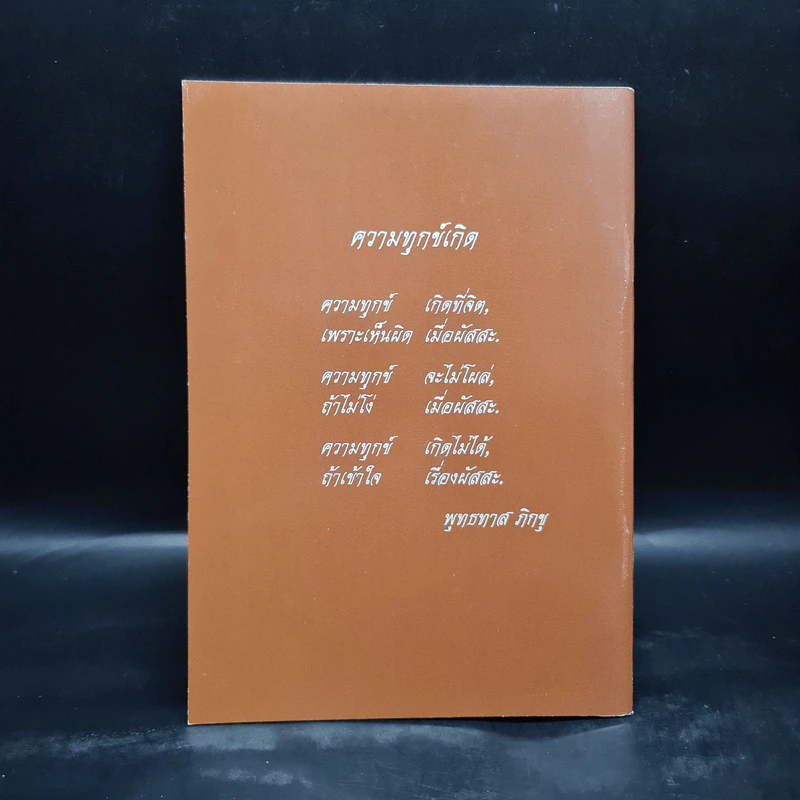 ความทุกข์เกิด
ความทุกข์ เกิดที่จิต,
เพราะเห็นผิด เมื่อผัสสะ.
ความทุกข์ จะไม่โผล่,
ถ้าไม่โง่ เมื่อผัสสะ.
ความทุกข์ เกิดไม่ได้,
ถ้าเข้าใจ เรื่องผัสสะ.
พุทธทาส ภิกขุ